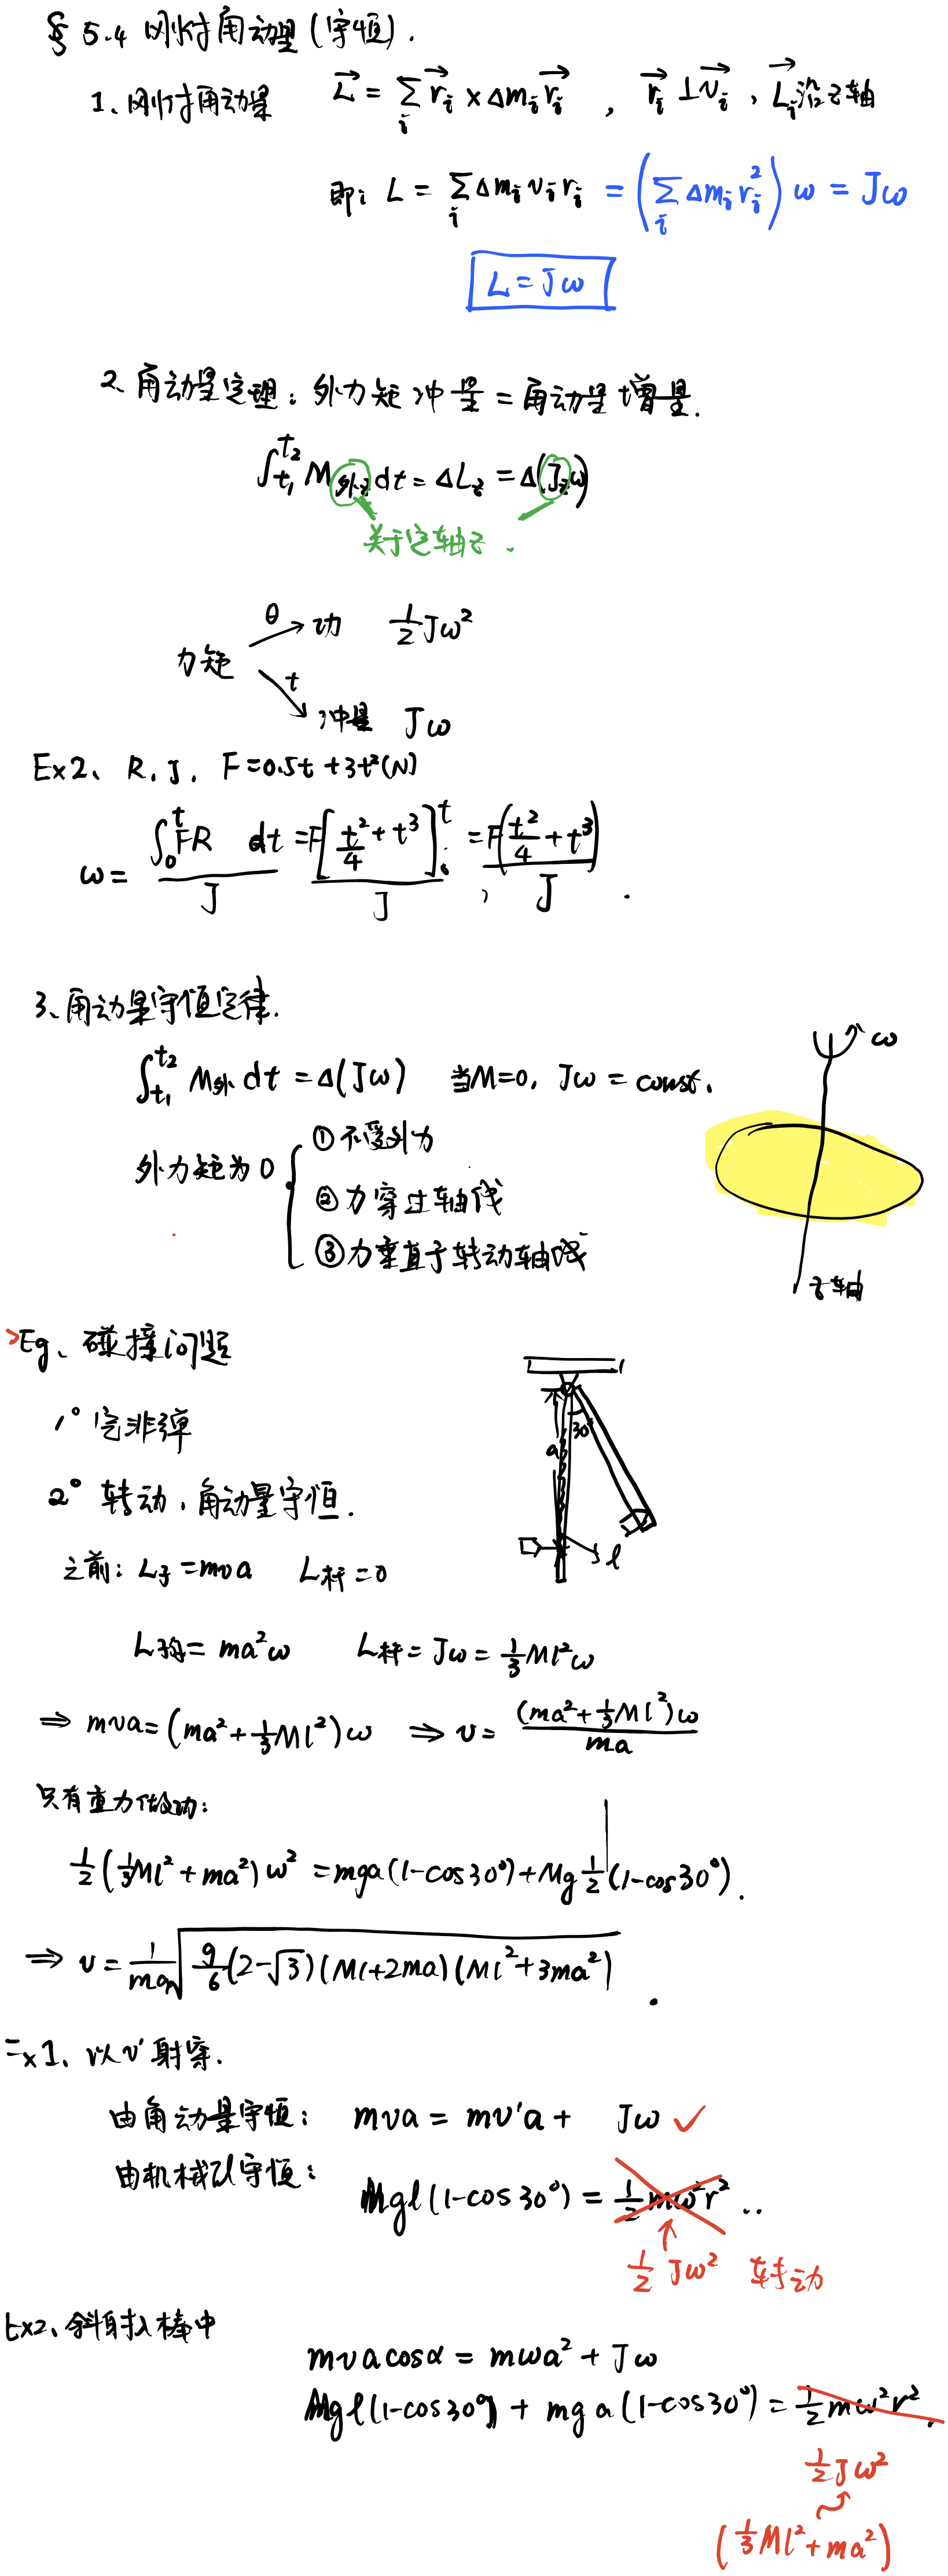 § 5.4 刚体角动量(守恒).
1、刚体角动量 L⃗ = ∑ᵢ r⃗ᵢ × Δmᵢ r⃗ᵢ , r⃗ᵢ ⊥ v⃗ᵢ , L⃗ᵢ 沿z轴
即: L = ∑ᵢ Δmᵢ vᵢ rᵢ = (∑ᵢ Δmᵢ rᵢ²) ω = Jω
L = Jω
2、角动量定理: 外力矩冲量 = 角动量增量.
∫_{t₁}^{t₂} M外z dt = ΔL_z = Δ(J_z ω)
关于定轴z.
θ → 功 ½Jω²
力矩
t → 冲量 Jω
Ex2、 R, J, F = 0.5t + 3t² (N)
ω = ∫₀ᵗ FR dt / J = F[t²/4 + t³]₀ᵗ / J = F(t²/4 + t³) / J .
3、角动量守恒定律.
ω
∫_{t₁}^{t₂} M外 dt = Δ(Jω) 当M=0, Jω = const.
外力矩为0
① 不受外力
② 力穿过轴线
③ 力垂直于转动轴线
z轴
Eg、碰撞问题
1° 完非弹
30°
a
2° 转动, 角动量守恒.
l
之前: L子 = mva L杆 = 0
= ma²ω L杆 = Jω = ⅓Ml²ω
⇒ mva = (ma² + ⅓Ml²)ω ⇒ v = (ma² + ⅓Ml²)ω / ma
只有重力做功:
½(⅓Ml² + ma²)ω² = mga(1-cos30°) + Mg ½(1-cos30°).
⇒ v = 1/ma √(g/6 (2-√3)(Ml+2ma)(Ml²+3ma²)) .
Ex1、以v'射穿.
由角动量守恒: mva = mv'a + Jω ✓
由机械能守恒: Mgl(1-cos30°) = ½mω²r² ..
½Jω² 转动
Ex2、斜射入棒中
mvacosα = mωa² + Jω
Mgl(1-cos30°) + mga(1-cos30°) = ½mω²r².
½Jω²
(⅓Ml² + ma²)